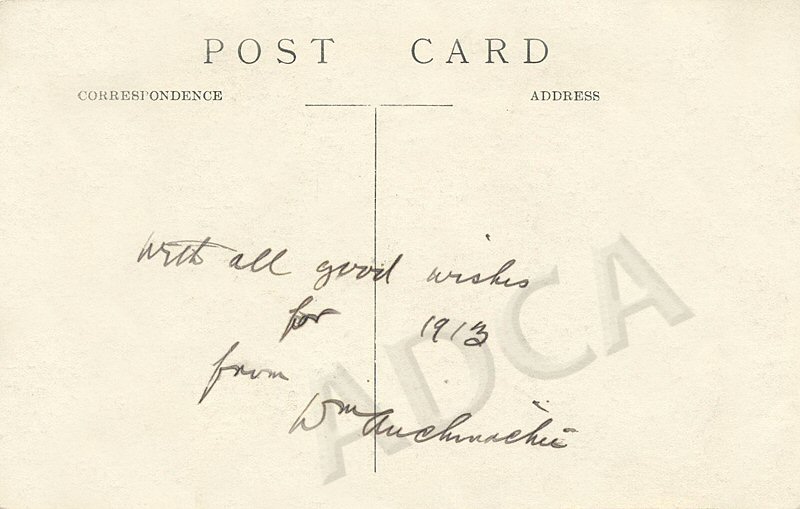 POST CARD
CORRESPONDENCE
ADDRESS
With all good wishes
for 1913
from
Wm Auchmachie
ADCA